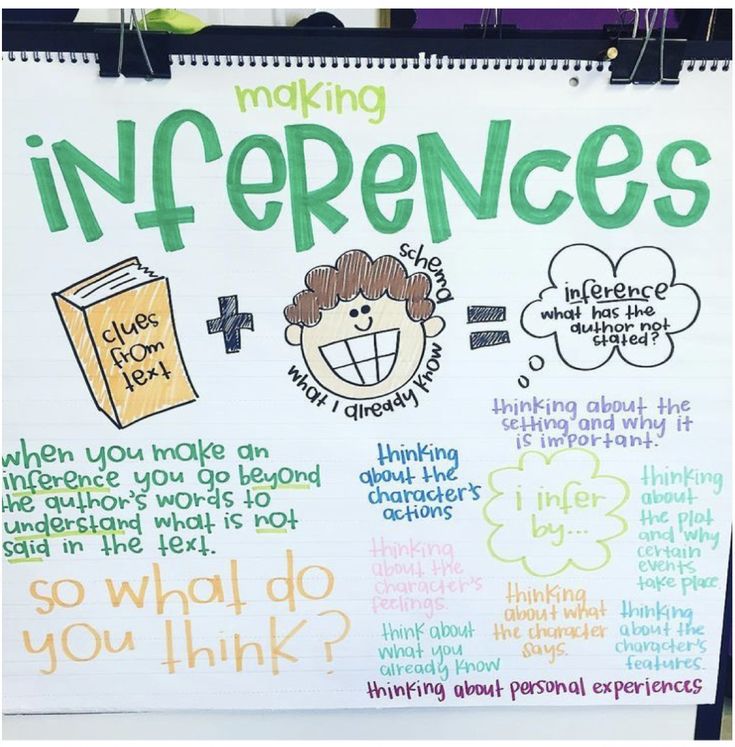 making
iNfeReNces
clues
from
text
+
schema
what I already know
=
inference
what has the
author not
stated?
when you make an
inference you go beyond
the author's words to
understand what is not
said in the text.
so what do
you think?
thinking about the
setting and why it
is important.
thinking
about the
character's
actions
i infer
by...
thinking
about
the plot
and why
certain
events
take place
thinking
about the
character's
feelings.
thinking
about what
the character
says.
thinking
about the
character's
features.
think about
what you
already know
thinking about personal experiences